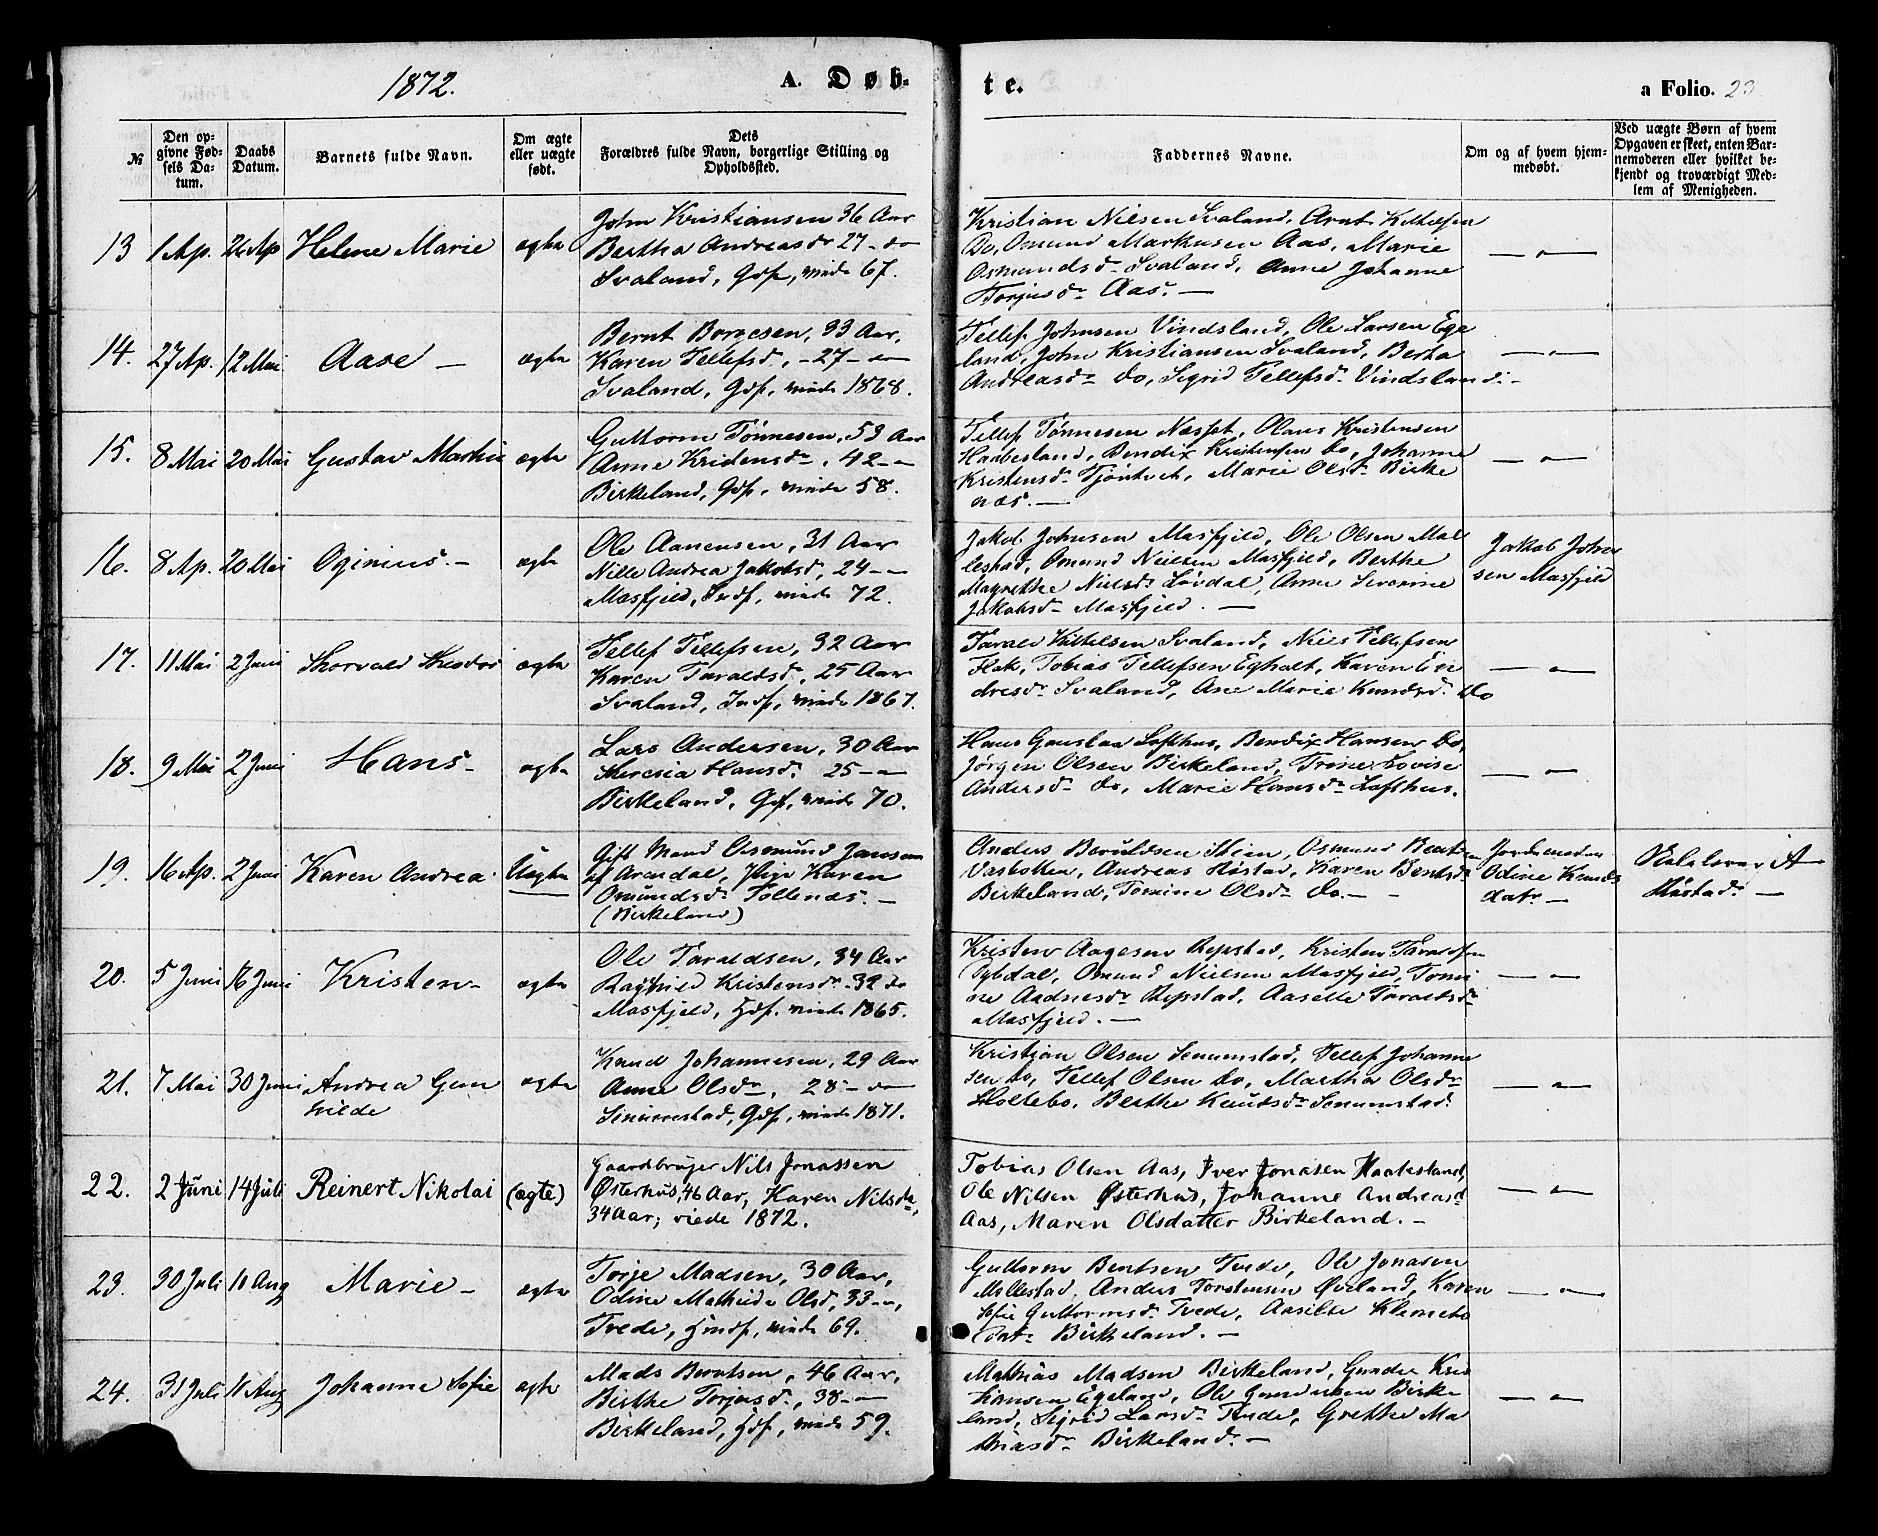 1872.
A. Døb-
te.
a Folio. 23.
№
Den op-
givne Fød-
sels Da-
tum.
Daabs
Datum.
Barnets fulde Navn.
Om ægte
eller uægte
født.
Dets
Forældres fulde Navn, borgerlige Stilling og
Opholdssted.
Faddernes Navne.
Om og af hvem hjem-
medøbt.
Ved uægte Børn af hvem
Opgaven er skeet, enten Bar-
nemoderen eller hvilket be-
kjendt og troværdigt Med-
lem af Menigheden.
13 1 Ap. 26 Ap Helene Marie ægte
John Kristiansen 36 Aar
Bertha Andreasdr 27 - do
Svaland, Gdf, viede 67.
Kristian Nielsen Svaland, Arnt Kittelsen
Do, Omund Markusen Aas, Marie
Osmundsdr Svaland, Anne Johanne
Torjusdr Aas. —
— " —
14. 27 Ap. 12 Mai Aase — ægte
Bernt Borgesen, 33 Aar,
Karen Tellefsd, - 27 - do
Svaland, Gdf, viede 1868.
Tellef Johnsen Vindsland, Ole Larsen Ege
land, John Kristiansen Svaland, Berta
Andreasdr do, Sigrid Tellefsdr Vindsland. -
— " —
15. 8 Mai 20 Mai Gustav Martin ægte
Guttorm Tönnesen, 53 Aar
Anne Kristensdr, 42 - "
Birkeland, Gdf, viede 58.
Tellef Tönnesen Næsset, Olaus Kristensen
Haabesland, Bendix Kristensen Do, Johanne
Kristensdr Tjöntvet, Marie Olsdr Birke
næs. —
— " —
16. 8 Ap. 20 Mai Oginius. — ægte
Ole Aanensen, 31 Aar
Nille Andrea Jakobsd, 24 - "
Masfjeld, Indf, viede 72.
Jakob Johnsen Masfjeld, Ole Olsen Mol
lestad, Omund Nielsen Masfjeld, Berthe
Magrethe Nielsdr Lövdal, Anne Severine
Jakobsdr Masfjeld. —
Jakob John
sen Masfjeld
17. 11 Mai 2 Juni Thorvald Theodor ægte
Tellef Tellefsen, 32 Aar
Karen Taraldsd, 25 Aar
Svaland, Indf, viede 1867.
Tarald Kittelsen Svaland, Niels Tellefsen
Flak, Tobias Tellefsen Egholt, Karen En
dresdr Svaland, Ane Marie Knudsd. do
— " —
18. 9 Mai 2 Juni Hans — ægte
Lars Andersen, 30 Aar
Theresia Hansd. 25 - "
Birkeland, Gdf, viede 70.
Hans Gunstan Lofthus, Bendix Hansen do,
Jörgen Olsen Birkeland, Trine Lovise
Andersdr do, Marie Hansdr Lofthus.
— " —
19. 16 Ap. 2 Juni Karen Andrea. Uægte
Gift Mand Osmund Jansen
af Arendal, Pige Karen
Omundsdr Föllenæs. —
(Birkeland)
Anders Beruldsen Stien, Osmund Bentsen
Vasbotten, Andreas Håstad, Karen Bentsdr
Birkeland, Tomine Olsdr Do. — -
Jordemoder
Odine Knuds
datr —
A
Håstad. —
20. 5 Juni 16 Juni Kristen — ægte
Ole Taraldsen, 34 Aar
Ragnild Kristensdr 32 do
Masfjeld, Hdf. viede 1865.
Kristen Aagesen Repstad, Kristen Taraldsen
Dybdal, Omund Nielsen Masfjeld, Tomi
ne Aadnesdr Repstad, Aaselle Taraldsdr
Masfjeld. —
— " —
21. 7 Mai 30 Juni Andrea Gun
hilde ægte
Knud Johannesen, 29 Aar
Anne Olsdr, 28 - do
Senumstad, Gdf, viede 1871.
Kristian Olsen Senumstad, Tellef Johanne
sen do, Tellef Olsen Do, Martha Olsdr
Holtebo, Berthe Knudsdr Senumstad.
— " —
22. 2 Juni 14 Juli Reinert Nikolai (ægte)
Gaardbruger Nils Jonassen
Østerhus, 46 Aar, Karen Nilsdr,
34 Aar; viede 1872.
Tobias Olsen Aas, Iver Jonasen Haabesland,
Ole Nilsen Østerhus, Johanne Andreasd
Aas, Maren Olsdatter Birkeland. —
— " —
23. 30 Juli 11 Aug Marie — ægte
Torje Madsen, 30 Aar,
Odine Mathilde Olsd, 33 - ",
Tvede, Hmdf, viede 69.
Guttorm Bentsen Tvede, Ole Jonasen,
Mollestad, Anders Torstensen Øveland, Karen
Sofie Guttormsd. Tvede, Aaselle Klemets
Datr Birkeland. —
— " —
24. 31 Juli 11 Aug Johanne Sofie ægte
Mads Berntsen, 46 Aar,
Birthe Torjusd., 38 - "
Birkeland, Hdf, viede 59.
Mathias Madsen Birkeland, Gunder Kris
tiansen Egeland, Ole Gundersen Birke
land, Sigrid Larsdr Tvede, Grethe Ma
thiasdr Birkeland. —
— " —